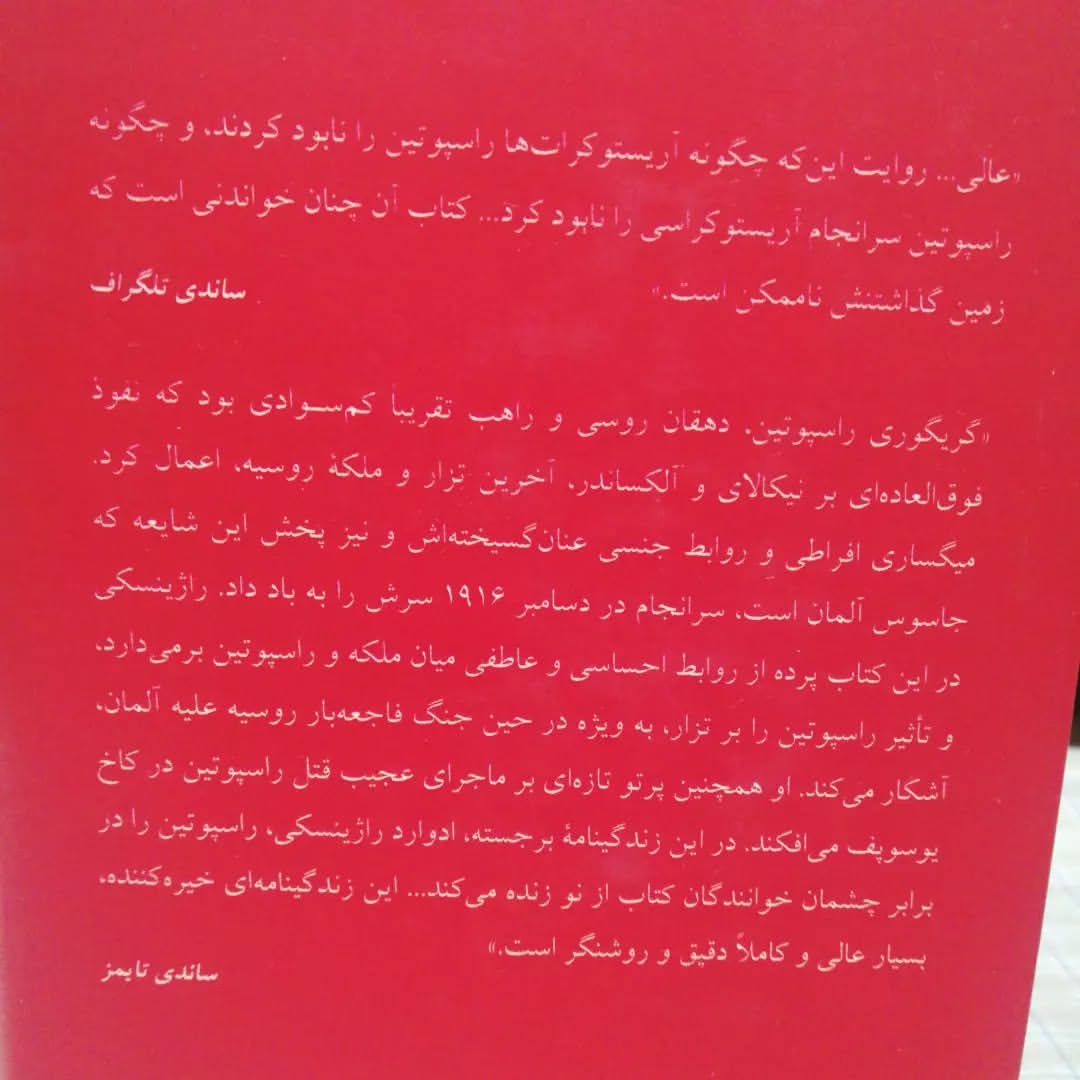 «عالی... روایت این‌که چگونه آریستوکرات‌ها راسپوتین را نابود کردند، و چگونه
راسپوتین سرانجام آریستوکراسی را نابود کرد... کتاب آن چنان خواندنی است که
زمین گذاشتنش ناممکن است.» ساندی تلگراف
«گریگوری راسپوتین، دهقان روسی و راهب تقریباً کم‌سوادی بود که نفوذ
فوق‌العاده‌ای بر نیکالای و آلکساندر، آخرین تزار و ملکهٔ روسیه، اعمال کرد.
میگساری افراطی و روابط جنسی عنان‌گسیخته‌اش و نیز پخش این شایعه که
جاسوس آلمان است، سرانجام در دسامبر ۱۹۱۶ سرش را به باد داد. راژینسکی
در این کتاب پرده از روابط احساسی و عاطفی میان ملکه و راسپوتین برمی‌دارد،
و تأثیر راسپوتین را بر تزار، به ویژه در حین جنگ فاجعه‌بار روسیه علیه آلمان،
آشگار می‌کند. او همچنین پرتو تازه‌ای بر ماجرای عجیب قتل راسپوتین در کاخ
یوسوپف می‌افکند. در این زندگینامهٔ برجسته، ادوارد راژینسکی، راسپوتین را در
برابر چشمان خوانندگان کتاب از نو زنده می‌کند... این زندگینامه‌ای خیره‌کننده،
بسیار عالی و کاملاً دقیق و روشنگر است.» ساندی تایمز